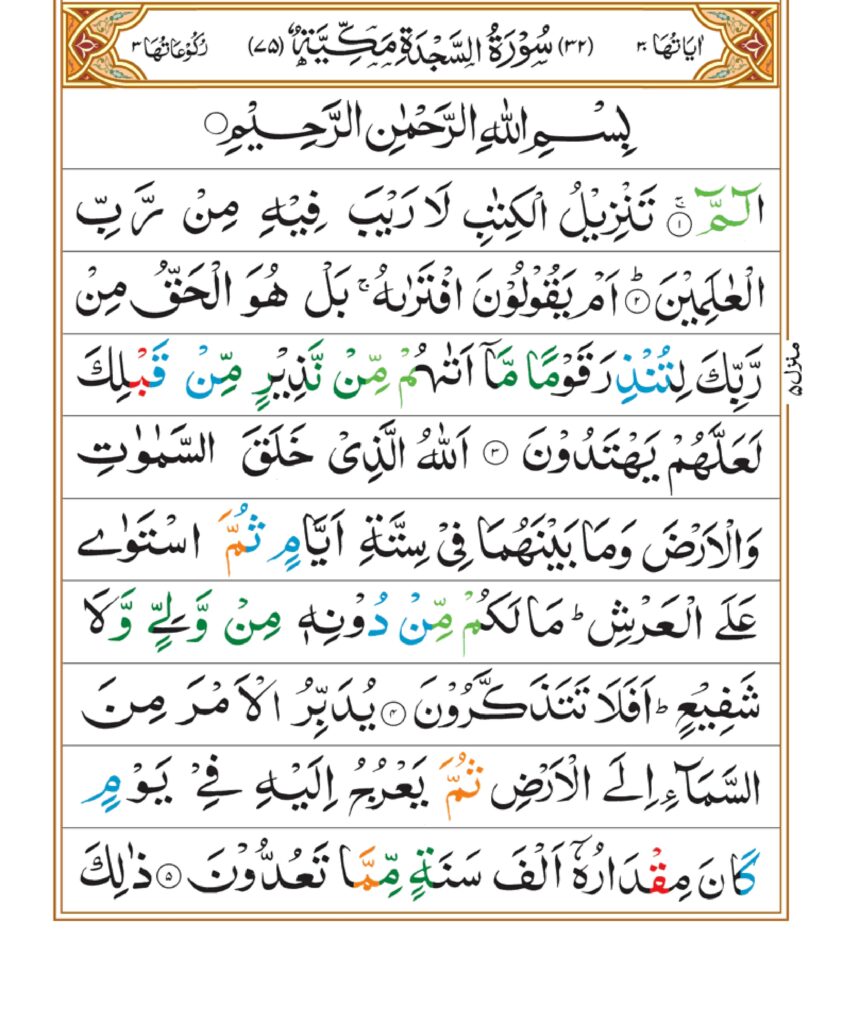 اٰيَاتُهَا ٣٠ (٣٢) سُوْرَةُ السَّجْدَةِ مَكِّيَّةٌ (٧٥) رُكُوْعَاتُهَا ٣
بِسْمِ اللّٰهِ الرَّحْمٰنِ الرَّحِيْمِ ۝
الٓمّٓ ۚ ۝١ تَنْزِيْلُ الْكِتٰبِ لَا رَيْبَ فِيْهِ مِنْ رَّبِّ
الْعٰلَمِيْنَ ؕ ۝٢ اَمْ يَقُوْلُوْنَ افْتَرٰىهُ ۚ بَلْ هُوَ الْحَقُّ مِنْ
رَّبِّكَ لِتُنْذِرَ قَوْمًا مَّاۤ اَتٰىهُمْ مِّنْ نَّذِيْرٍ مِّنْ قَبْلِكَ
لَعَلَّهُمْ يَهْتَدُوْنَ ۝٣ اَللّٰهُ الَّذِىْ خَلَقَ السَّمٰوٰتِ
وَالْاَرْضَ وَمَا بَيْنَهُمَا فِىْ سِتَّةِ اَيَّامٍ ثُمَّ اسْتَوٰى
عَلَى الْعَرْشِ ؕ مَا لَكُمْ مِّنْ دُوْنِهٖ مِنْ وَّلِىٍّ وَّلَا
شَفِيْعٍ ؕ اَفَلَا تَتَذَكَّرُوْنَ ۝٤ يُدَبِّرُ الْاَمْرَ مِنَ
السَّمَآءِ اِلَى الْاَرْضِ ثُمَّ يَعْرُجُ اِلَيْهِ فِىْ يَوْمٍ
كَانَ مِقْدَارُهٗۤ اَلْفَ سَنَةٍ مِّمَّا تَعُدُّوْنَ ۝٥ ذٰلِكَ
منزل ٥